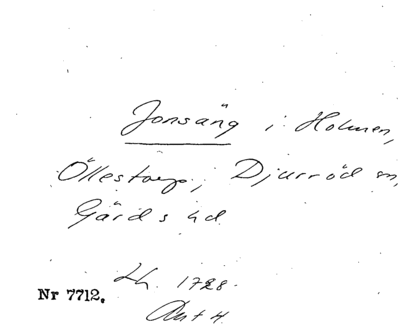 Jonsäng i Holmen,
Öllestorp, Djurröd sn,
Gärds hd.
Lh. 1728.
Nr 7712.
Akt 4.